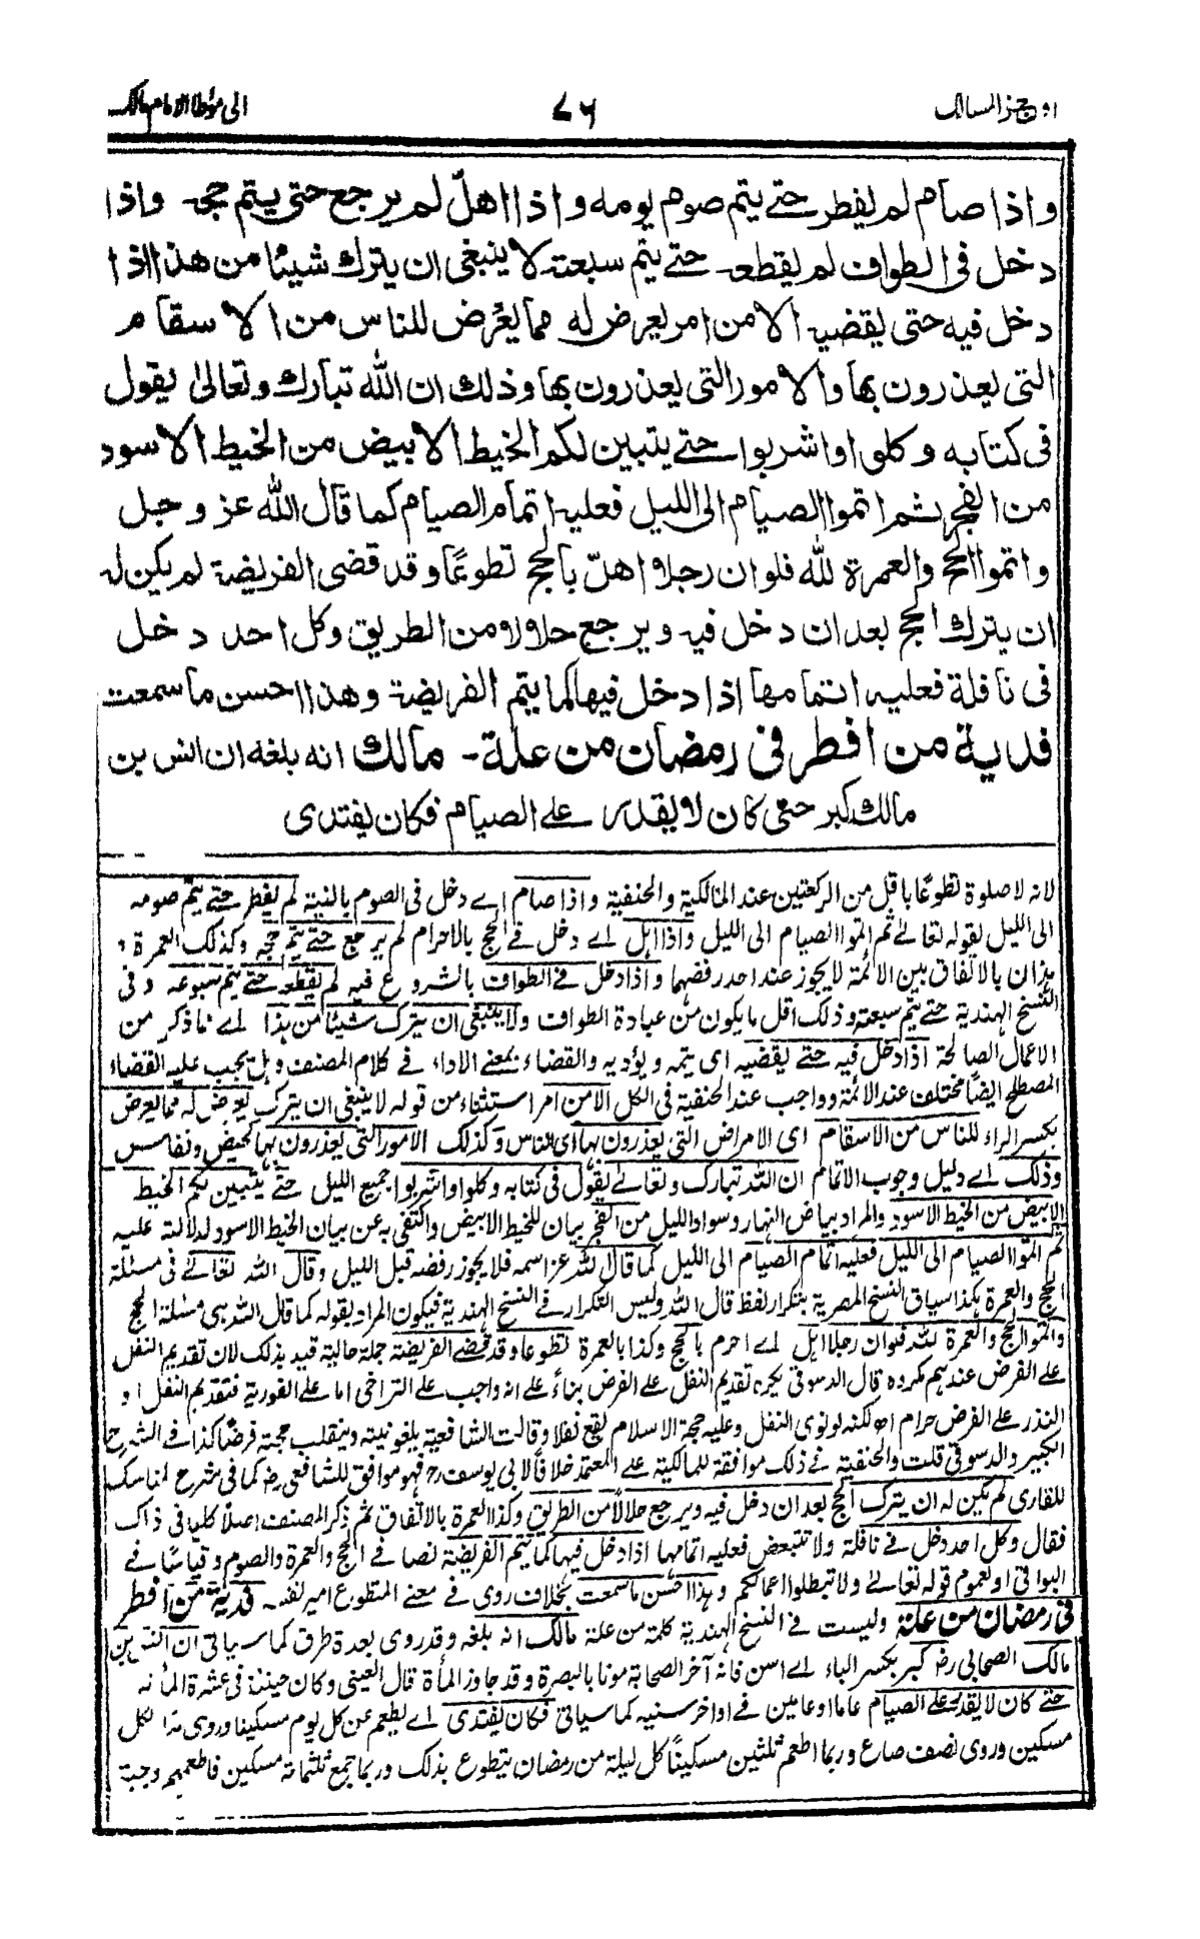 اوجز المسالك
٧٦
الى مؤطا الامام مالك
واذا صام لم يفطر حتى يتم صوم يومه واذا اهلّ لم يرجع حتى يتم حجه واذا
دخل فى الطواف لم يقطعه حتى يتم سبعته لا ينبغى ان يترك شيئا من هذا اذا
دخل فيه حتى يقضيه الا من امر يعرض له مما يعرض للناس من الاسقام
التى يعذرون بها والامور التى يعذرون بها وذلك ان الله تبارك وتعالى يقول
فى كتابه وكلوا واشربوا حتى يتبين لكم الخيط الابيض من الخيط الاسود
من الفجر ثم اتموا الصيام الى الليل فعليه اتمام الصيام كما قال الله عز وجل
واتموا الحج والعمرة لله فلو ان رجلا اهلّ بالحج تطوعًا وقد قضى الفريضة لم يكن له
ان يترك الحج بعد ان دخل فيه ويرجع حلالا من الطريق وكل احد دخل
فى نافلة فعليه اتمامها اذا دخل فيها كما يتم الفريضة وهذا احسن ما سمعت
فدية من افطر فى رمضان من علة۔ مالك انه بلغه ان انس بن
مالك كبر حتى كان لا يقدر على الصيام فكان يفتدى
لانه لا صلوة تطوعًا باقل من الركعتين عند المالكية والحنفية واذا صام اے دخل فى الصوم بالنية لم يفطر حتے يتم صومه
الى الليل لقوله تعالےٰ ثم اتموا الصيام الى الليل واذا اهل اے دخل فے الحج بالاحرام لم يرجع حتے يتم حجه وكذلك العمرة و
هذان بالاتفاق بين الائمة لا يجوز عند احد رفضهما واذا دخل فے الطواف بالشروع فيه لم يقطعه حتے يتم سبوعه وفى
النسخ الهندية حتے يتم سبعته وذلك اقل ما يكون من عبادة الطواف ولا ينبغى ان يترك شيئا من هذا اے ما ذكر من
الاعمال الصالحة اذا دخل فيه حتے يقضيه اى يتمه ويؤديه والقضاء بمعنے الاداء فے كلام المصنف وهل يجب عليه القضاء
المصطلح ايضًا مختلف عند الائمة وواجب عند الحنفية فى الكل الا من امر استثناء من قوله لا ينبغى ان يترك يعرض له مما يعرض
بكسر الراء للناس من الاسقام اى الامراض التى يعذرون بها اى الناس وكذلك الامور التى يعذرون بها كحيض ونفاس
وذلك اے دليل وجوب الاتمام ان الله تبارك وتعالےٰ يقول فى كتابه وكلوا واشربوا جميع الليل حتے يتبين لكم الخيط
الابيض من الخيط الاسود والمراد بياض النهار وسواد الليل من الفجر بيان للخيط الابيض واكتفى به عن بيان الخيط الاسود لدلالته عليه
ثم اتموا الصيام الى الليل فعليه اتمام الصيام الى الليل كما قال الله عز اسمه فلا يجوز رفضه قبل الليل وقال الله تعالےٰ فى مسئلة
الحج والعمرة هكذا سياق النسخ المصرية بتكرار لفظ قال الله وليس التكرار فے النسخ الهندية فيكون المراد بقوله كما قال الله هى مسئلة الحج
واتموا الحج والعمرة لله فلو ان رجلا اهل اے احرم بالحج وكذا بالعمرة تطوعا وقد قضے الفريضة جملة حالية قيد بذلك لان تقديم النفل
علے الفرض عندهم مكروه قال الدسوقى يكره تقديم النفل علے الفرض بناءً علے انه واجب علے التراخى اما علے الفورية فتقديم النفل او
النذر علے الفرض حرام اھ لكنه لو نوى النفل وعليه حجة الاسلام يقع نفلا وقالت الشافعية يلغو نيته وينقلب حجته فرضًا كذا فے الشرح
الكبير والدسوقى قلت والحنفية فے ذلك موافقة للمالكية علے المعتمد خلافًا لابى يوسف رح فهو موافق للشافعى رض كما فى شرح المناسك
للقارى لم يكن له ان يترك الحج بعد ان دخل فيه ويرجع حلالًا من الطريق وكذا العمرة بالاتفاق ثم ذكر المصنف اصلًا كليا فى ذاك
فقال وكل احد دخل فے نافلة ولا تتبعض فعليه اتمامها اذا دخل فيها كما يتم الفريضة نصا فے الحج والعمرة والصوم وقياسًا فے
البواقى او لعموم قوله تعالےٰ ولا تبطلوا اعمالكم وهذا احسن ما سمعت بخلاف روى فے معنے المتطوع امير نفسه فدية من افطر
فى رمضان من علة وليست فے النسخ الهندية كلمة من علة مالك انه بلغه وقد روى بعدة طرق كما سياتى ان انس بن
مالك الصحابى رض كبر بكسر الباء اے اسن فانه آخر الصحابة موتا بالبصرة وقد جاوز المأة قال العينى وكان حينئذ فى عشرة المأنه
حتے كان لا يقدر علے الصيام عاما او عامين فے اواخر سنيه كما سياتى فكان يفتدى اے يطعم عن كل يوم مسكينا وروى مدا لكل
مسكين وروى نصف صاع وربما اطعم ثلثين مسكينًا كل ليلة من رمضان يتطوع بذلك وربما جمع ثلثمائة مسكين فاطعمهم وجبة